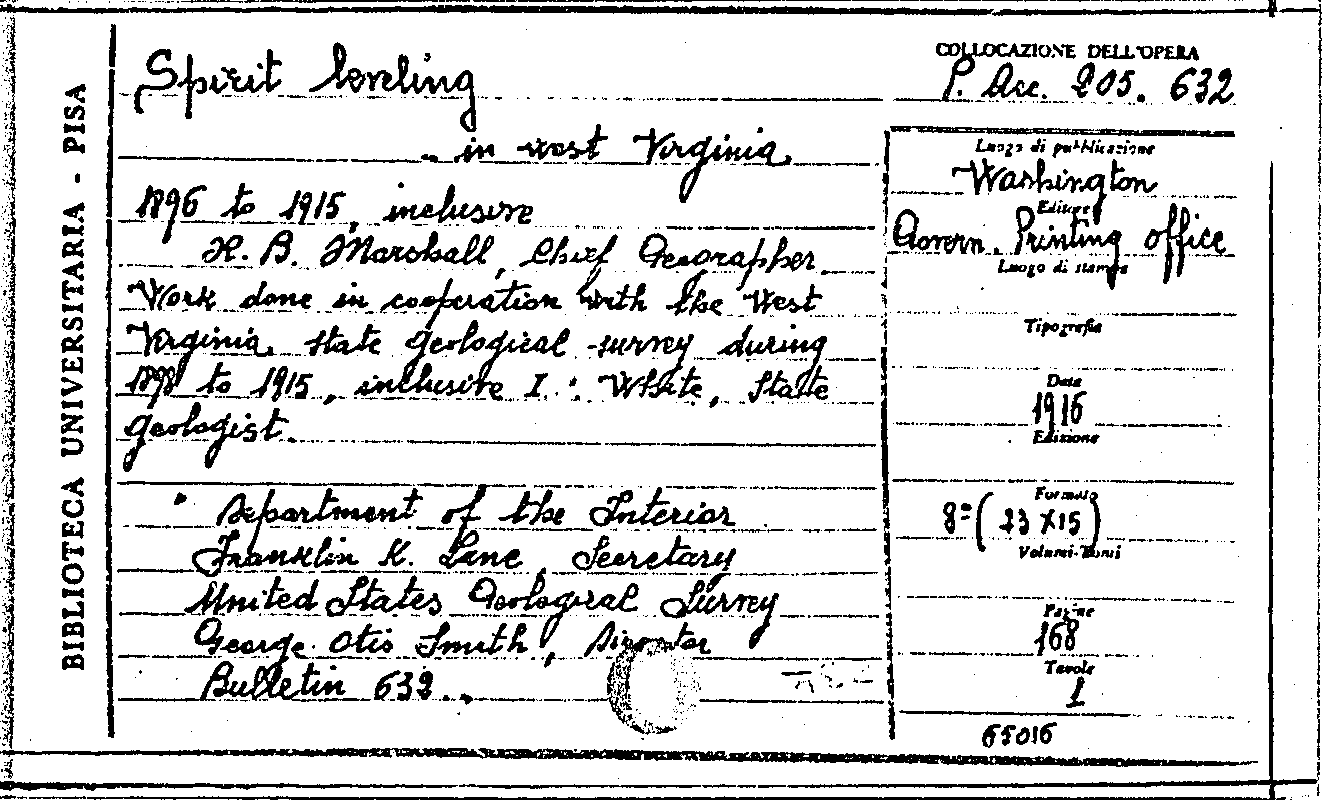 BIBLIOTECA UNIVERSITARIA - PISA
Spirit leveling
in west Virginia
1896 to 1915, inclusive
R. B. Marshall, Chief Geographer
Work done in cooperation with the West
Virginia state geological survey during
1898 to 1915, inclusive I. : White, State
geologist.
Department of the Interior
Franklin K. Lane, Secretary
United States Geological Survey
George Otis Smith, Director
Bulletin 632.
COLLOCAZIONE DELL'OPERA
P. Acc. 205. 632
Luogo di pubblicazione
Washington
Editore
Govern. Printing office
Luogo di stampa
Tipografia
Data
1916
Edizione
Formato
8º (23 X15)
Volumi-Tomi
Pagine
168
Tavole
1
65016